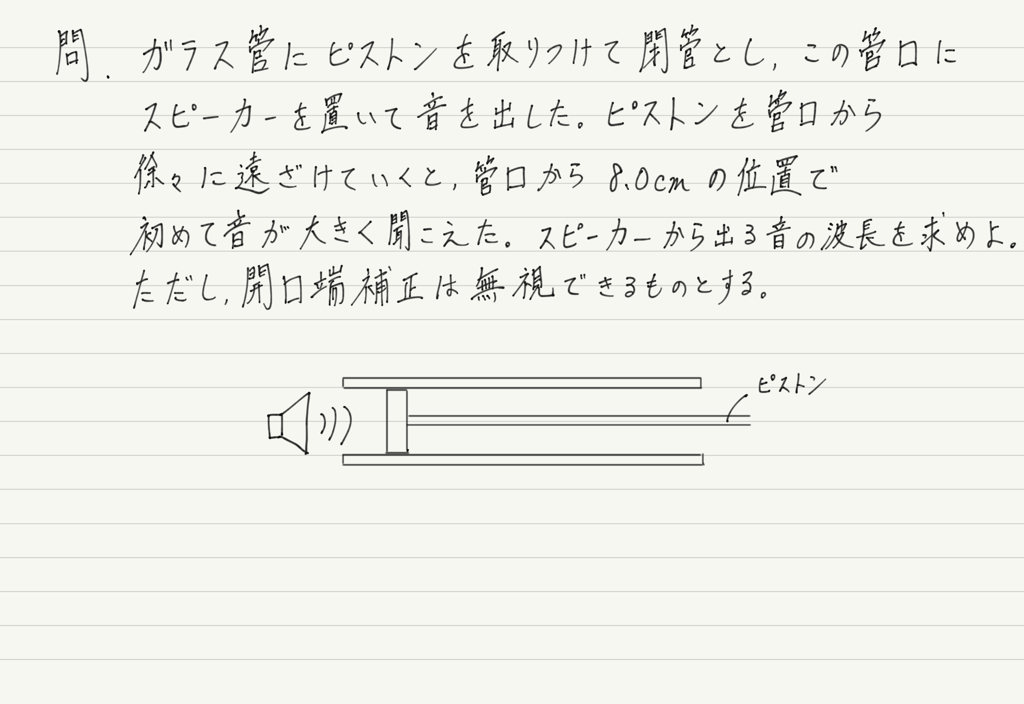 問. ガラス管にピストンを取りつけて閉管とし, この管口に
スピーカーを置いて音を出した。ピストンを管口から
徐々に遠ざけていくと, 管口から 8.0cm の位置で
初めて音が大きく聞こえた。スピーカーから出る音の波長を求めよ。
ただし, 開口端補正は無視できるものとする。
ピストン